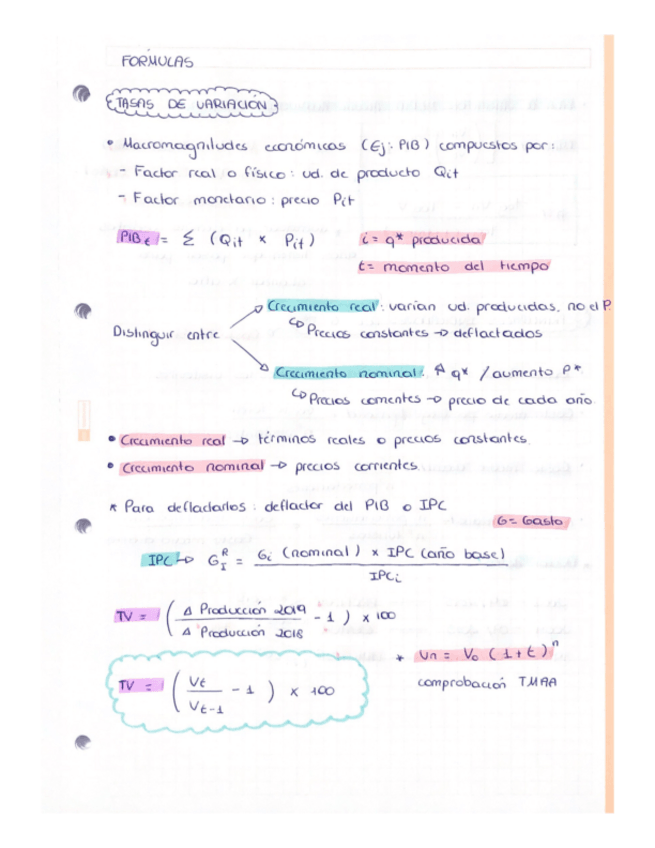 FORMULAS
TASAS DE VARIACIÓN
• Macromagnitudes económicas (Ej: PIB) compuestos por:
- Factor real o físico: ud. de producto Qit
- Factor monetario: precio Pit
PIBt = Σ (Qit × Pit)
i = q* producida
t = momento del tiempo
Crecimiento real: varían ud. producidas, no el P.
↳ Precios constantes → deflactados
Distinguir entre
Crecimiento nominal: Δ q* / aumento P*
↳ Precios corrientes → precio de cada año.
• Crecimiento real → términos reales o precios constantes.
• Crecimiento nominal → precios corrientes.
* Para deflactarlos: deflactor del PIB o IPC
G = Gasto
IPC → G_I^R = Gi (nominal) × IPC (año base) / IPCi
TV = (Δ Producción 2019 / Δ Producción 2018 - 1) × 100
* Vn = Vo (1+t)^n
comprobación TMAA
TV = (Vt / Vt-1 - 1) × 100